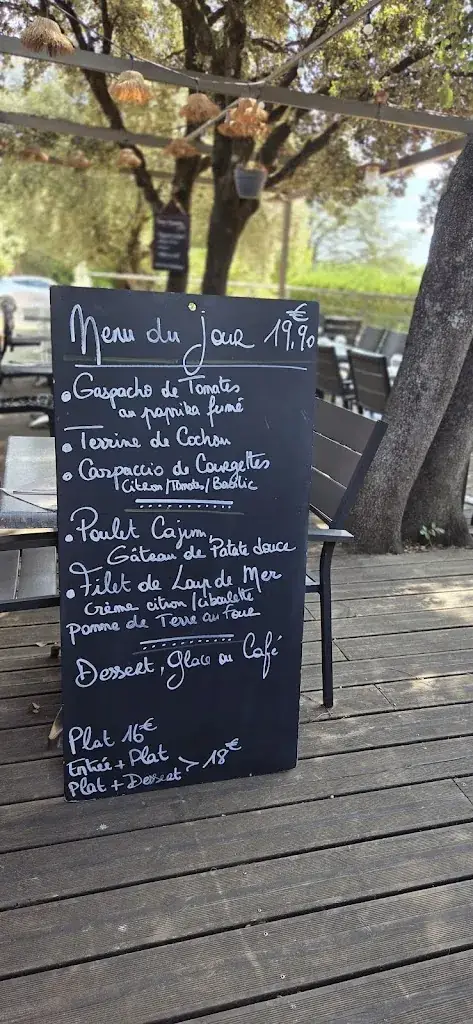 Menu du jour 19,90 €
• Gaspacho de Tomates
au paprika fumé
- Terrine de Cochon
• Carpaccio de Courgettes
Citron/Tomates/Basilic
• Poulet Cajun
Gâteau de Patate douce
• Filet de Loup de Mer
Crème citron/ciboulette
pomme de Terre au four
Dessert, Glace ou Café
Plat 16€
Entrée + Plat
Plat + Dessert > 18€